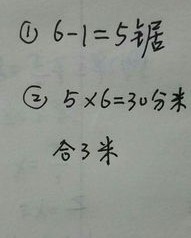 ① 6-1=5锯
② 5×6=30分米
合3米